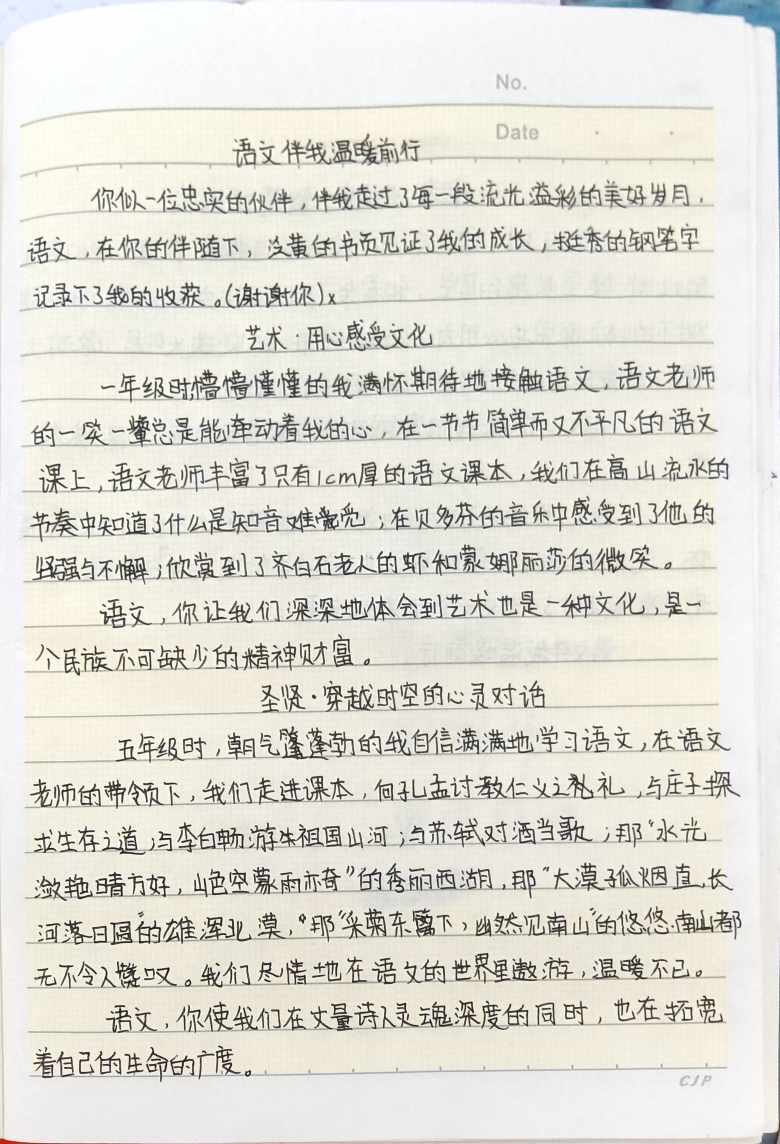 No.
Date
语文伴我温暖前行
你似一位忠实的伙伴，伴我走过了每一段流光溢彩的美好岁月，
语文，在你的伴随下，泛黄的书页见证了我的成长，挺秀的钢笔字
记录下了我的收获。(谢谢你)x
艺术·用心感受文化
一年级时懵懵懂懂的我满怀期待地接触语文，语文老师
的一笑一颦总是能牵动着我的心，在一节节简单而又不平凡的语文
课上，语文老师丰富了只有1cm厚的语文课本，我们在高山流水的
节奏中知道了什么是知音难觅；在贝多芬的音乐中感受到了他的
坚强与不懈；欣赏到了齐白石老人的虾和蒙娜丽莎的微笑。
语文，你让我们深深地体会到艺术也是一种文化，是一
个民族不可缺少的精神财富。
圣贤·穿越时空的心灵对话
五年级时，朝气蓬蓬勃的我自信满满地学习语文，在语文
老师的带领下，我们走进课本，向孔孟讨教仁义之礼，与庄子探
求生存之道；与李白畅游祖国山河；与苏轼对酒当歌；那“水光
潋艳晴方好，山色空蒙雨亦奇”的秀丽西湖，那“大漠孤烟直，长
河落日圆”的雄浑北漠，“那“采菊东篱下，幽然见南山”的悠悠南山都
无不令人赞叹。我们尽情地在语文的世界里遨游，温暖不已。
语文，你使我们在丈量诗人灵魂深度的同时，也在拓宽
着自己的生命的广度。
CJP